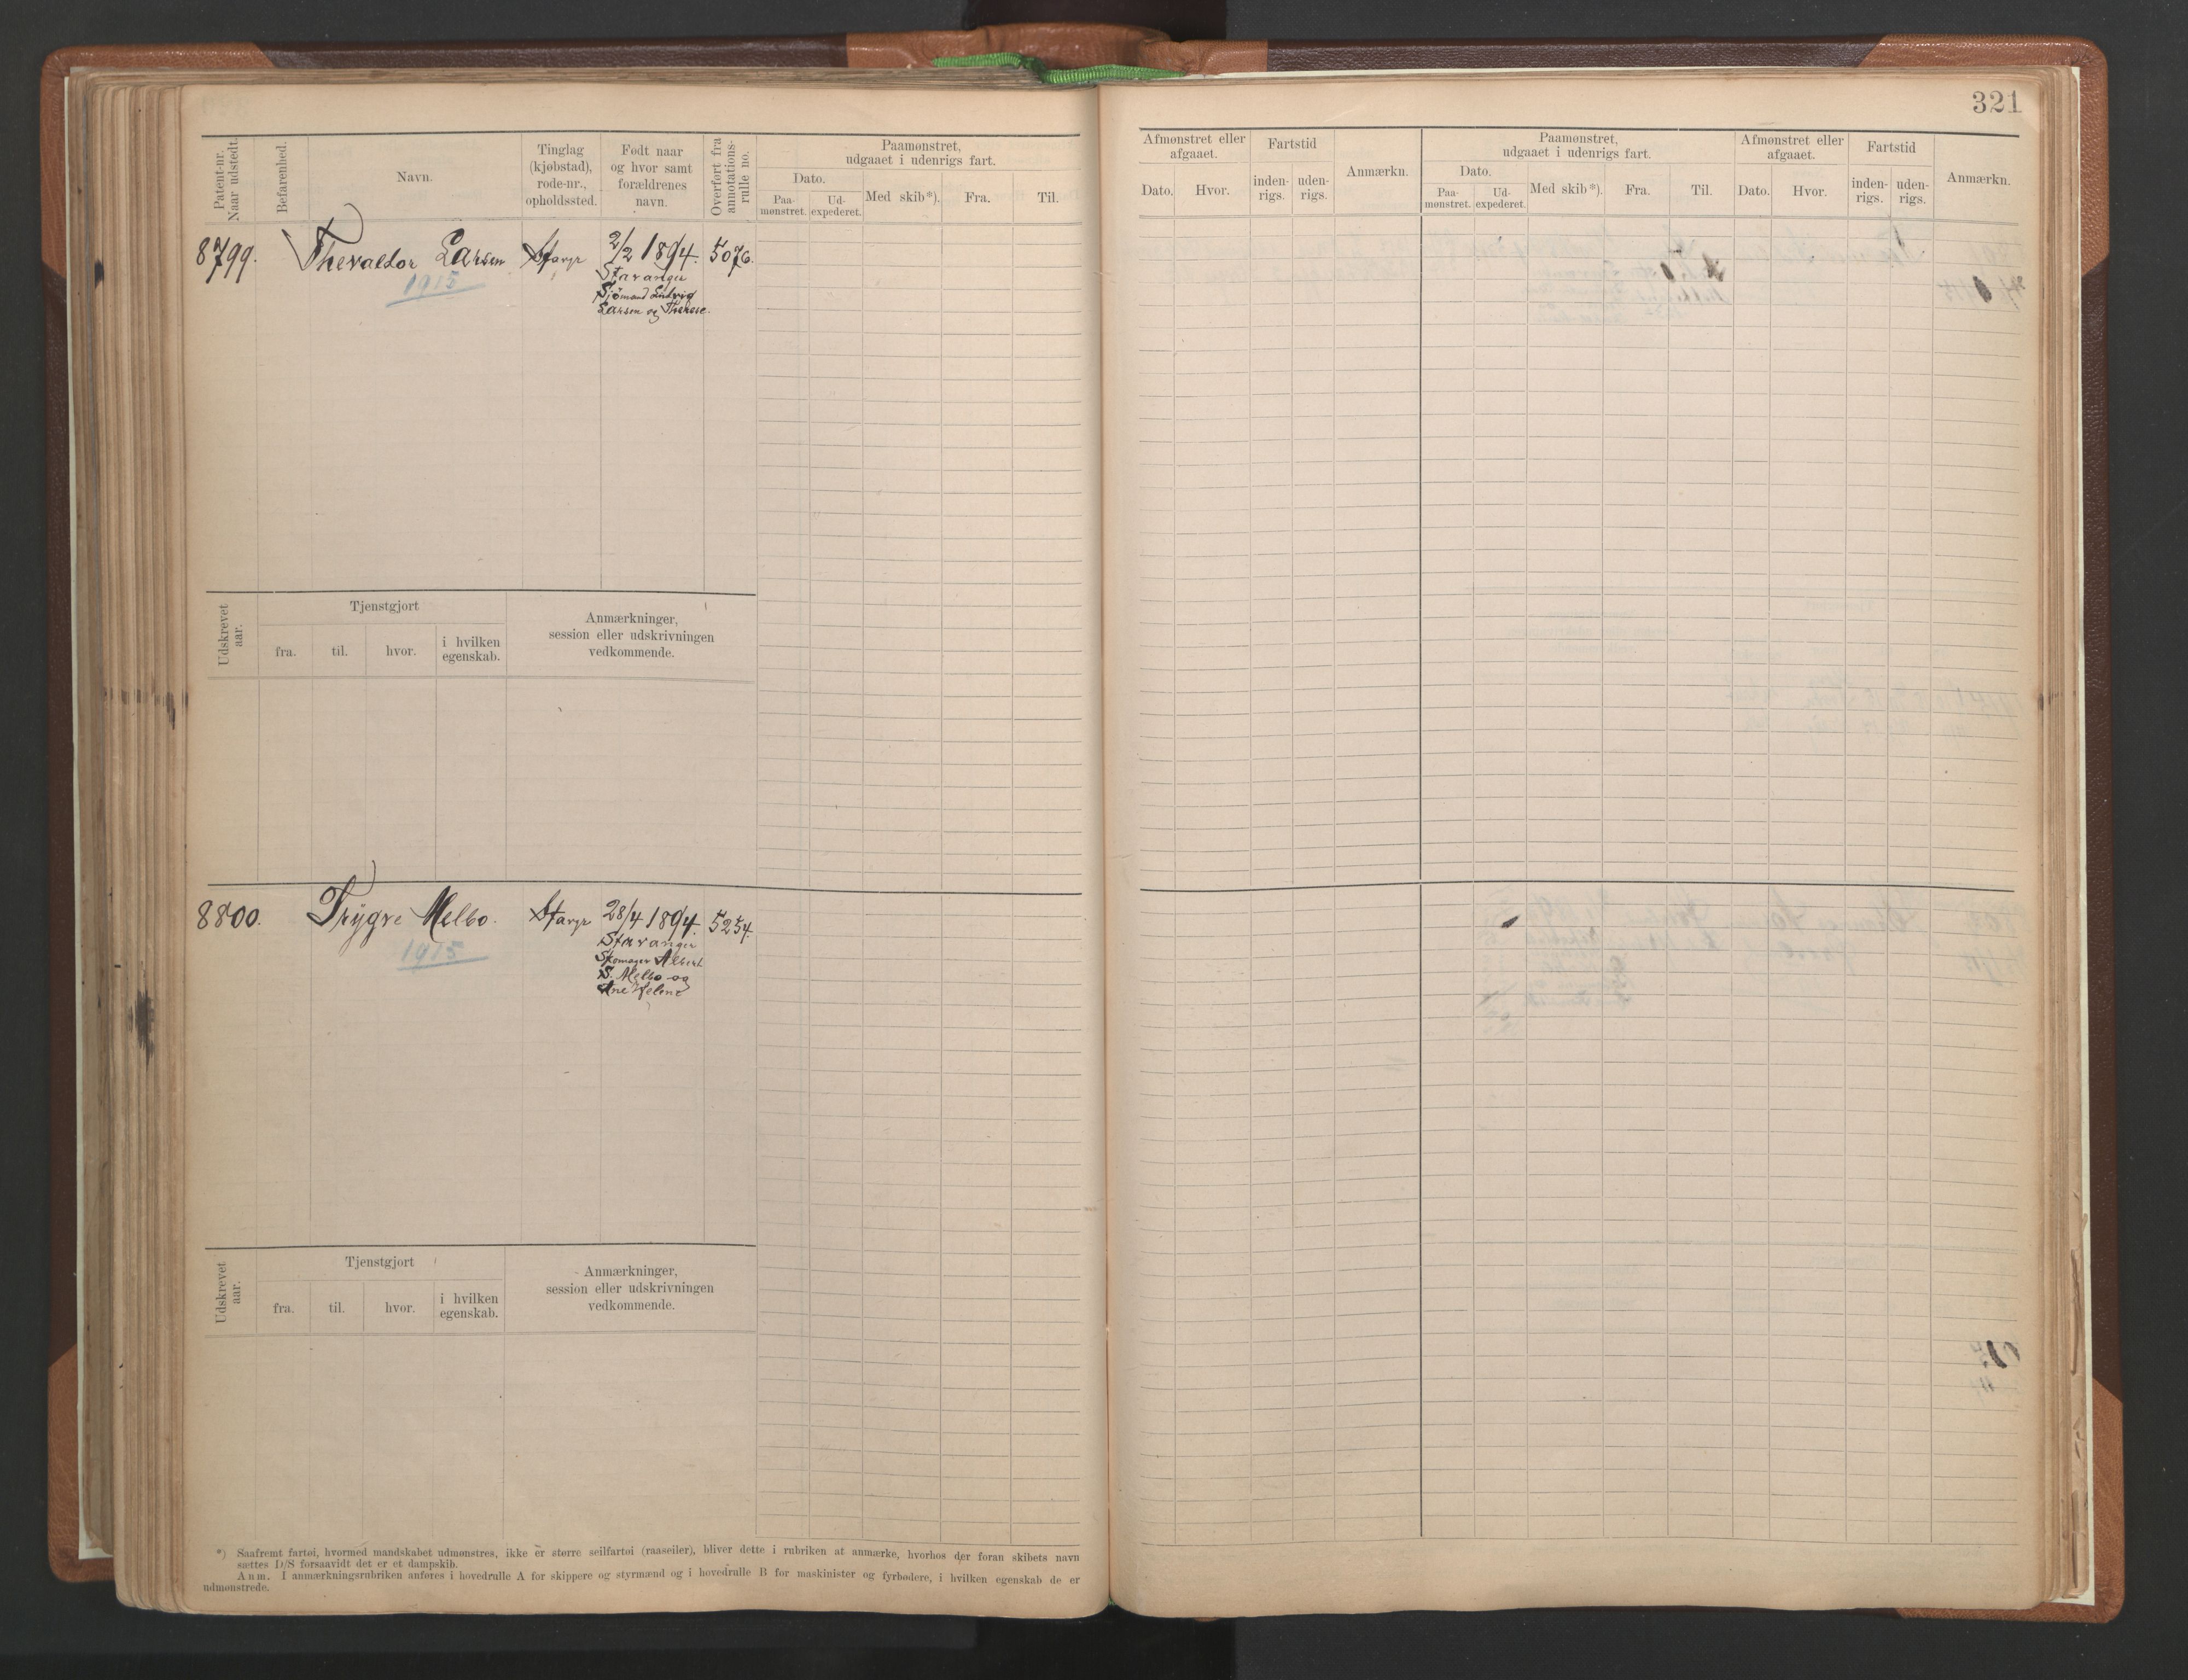 321
Patent-nr. Naar udstedt.
Befarenhed.
Navn.
Tinglag (kjøbstad), rode-nr., opholdssted.
Født naar og hvor samt forældrenes navn.
Overført fra annotations-rulle no.
Paamønstret, udgaaet i udenrigs fart.
Dato.
Paa-mønstret.
Ud-expederet.
Med skib*).
Fra.
Til.
Afmønstret eller afgaaet.
Dato.
Hvor.
Fartstid
inden-rigs.
uden-rigs.
Anmærkn.
Paamønstret, udgaaet i udenrigs fart.
Dato.
Paa-mønstret.
Ud-expederet.
Med skib*).
Fra.
Til.
Afmønstret eller afgaaet.
Dato.
Hvor.
Fartstid
inden-rigs.
uden-rigs.
Anmærkn.
8799. Thevaldor Larsen Stavgr 2/2 1894. 5076.
1915
Stavanger
Sjömand Ludvig
Larsen og Therese.
Udskrevet aar.
Tjenstgjort
fra.
til.
hvor.
i hvilken egenskab.
Anmærkninger,
session eller udskrivningen
vedkommende.
8800. Trygve Melbo. Stavgr 28/4 1894. 5254.
1915
Stavanger
Skomager Albert
S. Melbo og
Ane Helene
Udskrevet aar.
Tjenstgjort
fra.
til.
hvor.
i hvilken egenskab.
Anmærkninger,
session eller udskrivningen
vedkommende.
*) Saafremt fartøi, hvormed mandskabet udmønstres, ikke er større seilfartøi (raaseiler), bliver dette i rubriken at anmærke, hvorhos der foran skibets navn
sættes D/S forsaavidt det er et dampskib.
Anm. I anmærkningsrubriken anføres i hovedrulle A for skippere og styrmænd og i hovedrulle B for maskinister og fyrbødere, i hvilken egenskab de er
udmønstrede.